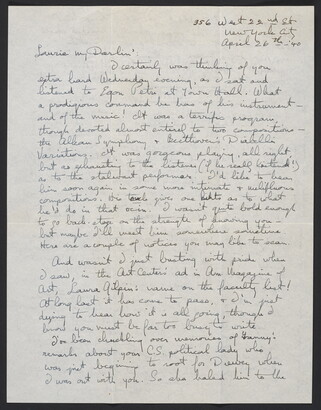 356 West 22nd St.
New York City
April 26th-'40
Laurie my Darlin':
I certainly was thinking of you
extra hard Wednesday evening, as I sat and
listened to Egon Petri at Town Hall. What
a prodigious command he has of his instrument—
and of the music! It was a terrific program,
though devoted almost entirely to two compositions—
the Alkan Symphony & Beethoven's Diabelli
Variations. It was gorgeous playing, all right,
but as exhausting to the listener (if he really listened!)
as to the stalwart performer. I'd like to hear
him soon again in some more intimate & mellifluous
compositions. His give one hints as to what
he'd do in that vein. I wasn't quite bold enough
to go back-stage on the strength of knowing you—
but maybe I'll meet him somewhere sometime.
Here are a couple of notices you may like to see.
And wasn't I just busting with pride when
I saw, in the Art Center's ad in Am. Magazine of
Art, Laura Gilpin's name on the faculty list!
At long last it has come to pass, & I'm just
dying to hear how it is all going, though I
know you must be far too busy to write.
I've been chuckling over memories of
remarks about your C.S. political lady who
was just beginning to root for Dewey when
I was out with you. So she haled him to the